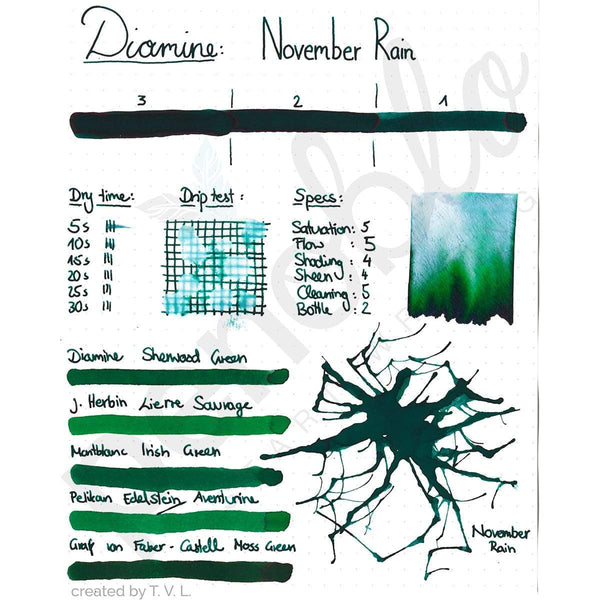 Diamine: November Rain
3 2 1
Dry time: Drip test: Specs:
5s
10s
15s
20s
25s
30s
Saturation: 5
Flow : 5
Shading : 4
Sheen : 4
Cleaning : 5
Bottle : 2
Diamine Sherwood Green
J. Herbin Lierre Sauvage
Montblanc Irish Green
Pelikan Edelstein Aventurine
Graf von Faber-Castell Moss Green
November
Rain
created by T. V. L.